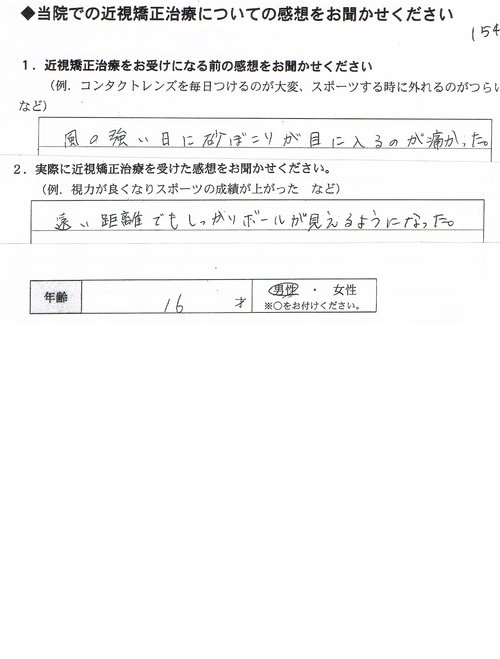 ◆当院での近視矯正治療についての感想をお聞かせください
154
1．近視矯正治療をお受けになる前の感想をお聞かせください
（例．コンタクトレンズを毎日つけるのが大変、スポーツする時に外れるのがつらい
など）
風の強い日に砂ぼこりが目に入るのが痛かった。
2．実際に近視矯正治療を受けた感想をお聞かせください。
（例．視力が良くなりスポーツの成績が上がった　など）
遠い距離でもしっかりボールが見えるようになった。
年齢　16　才　男性　・　女性
※○をお付けください。